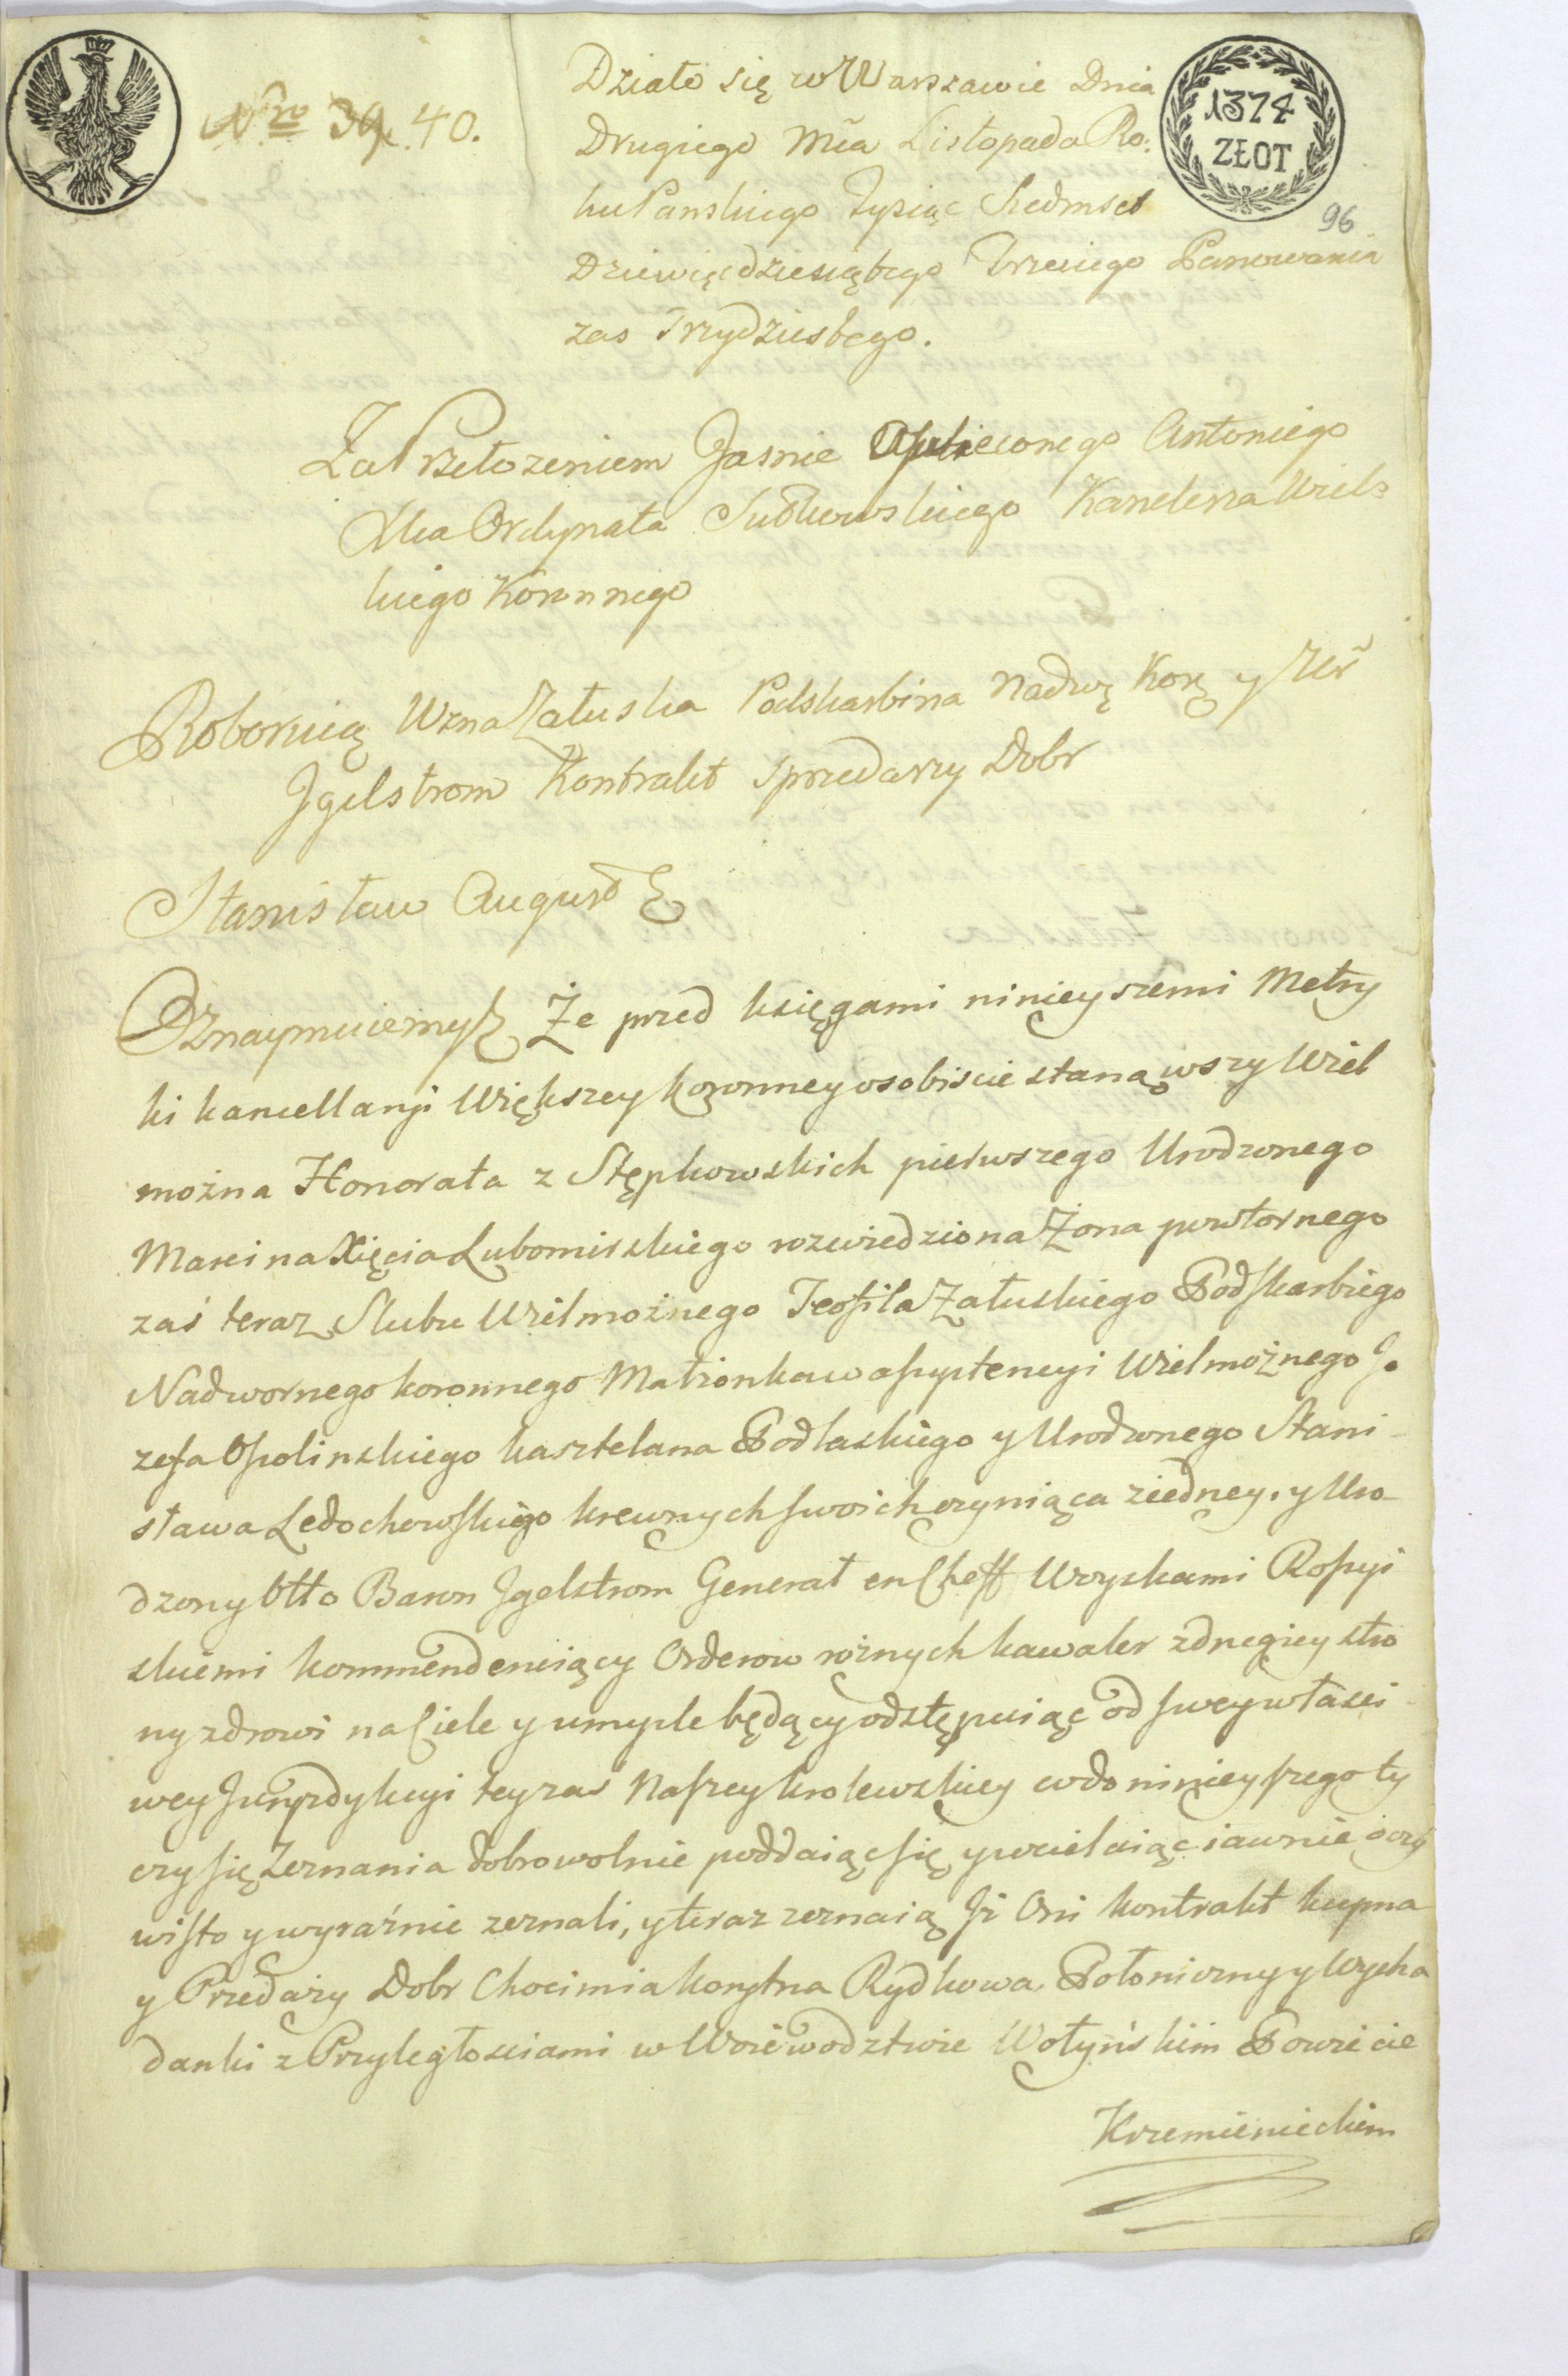 Nro 39. 40.
Działo się w Warszawie Dnia
Drugiego Mca Listopada Ro:
ku Panskiego Tysiąc Siedmset
Dziewięcdziesiątego Trzeciego Panowania
zas Trzydziestego.
1374
ZŁOT
96
Za Przełozeniem Jasnie Oswieconego Antoniego
Xcia Ordynata Sułkowskiego Kanclerza Wiel:
kiego Koronnego
Roboruią Wzna Załuska Podskarbina Nadwą Korą y Ur
Jgelstrom Kontrakt sprzedarzy Dobr
Stanisław August &
Oznaymuiemy & Że przed księgami ninieyszemi Metry
ki kancellaryi Większey koronney osobiscie stanąwszy Wiel
można Honorata z Stępkowskich pierwszego Urodzonego
Marcina Xięcia Lubomirskiego rozwiedziona Żona powtornego
zaś teraz Slubu Wielmożnego Teofila Załuskiego Podskarbiego
Nadwornego koronnego Małżonka w assystencyi Wielmożnego Jo
zefa Opolinskiego kasztelana Podlaskiego y Urodzonego Stani-
sława Ledochowskiego krewnych swoich czyniąca ziedney, y Uro-
dzony Otto Baron Jgelstrom Generał en Cheff Woyskami Rossyi
skiemi kommenderuiący Orderow rożnych kawaler zdrugiey stro
ny zdrowi na Ciele y umysle będący odstępuiąc od swey własci-
wey Juryzdykcyi teyzas Naszey krolewskiey codo ninieyszego ty
czy się Zeznania dobrowolnie poddaiąc się y wcielaiąc iawnie oczy
wisto y wyraźnie zeznali, y teraz zeznaią Jż Oni kontrakt kupna
y Przedaży Dobr Chocimia korytna Rydkowa, Połoniczny y Wycha
danki z Przyległosciami w Woiewodztwie Wołyńskim Powiecie
Krzemienieckim